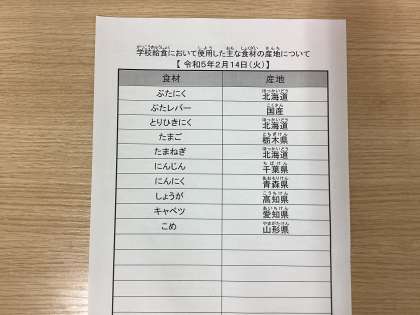 学校給食において使用した主な食材の産地について
【 令和5年2月14日(火)】
食材 産地
ぶたにく 北海道
ぶたレバー 国産
とりひきにく 北海道
たまご 栃木県
たまねぎ 北海道
にんじん 千葉県
にんにく 青森県
しょうが 高知県
キャベツ 愛知県
こめ 山形県